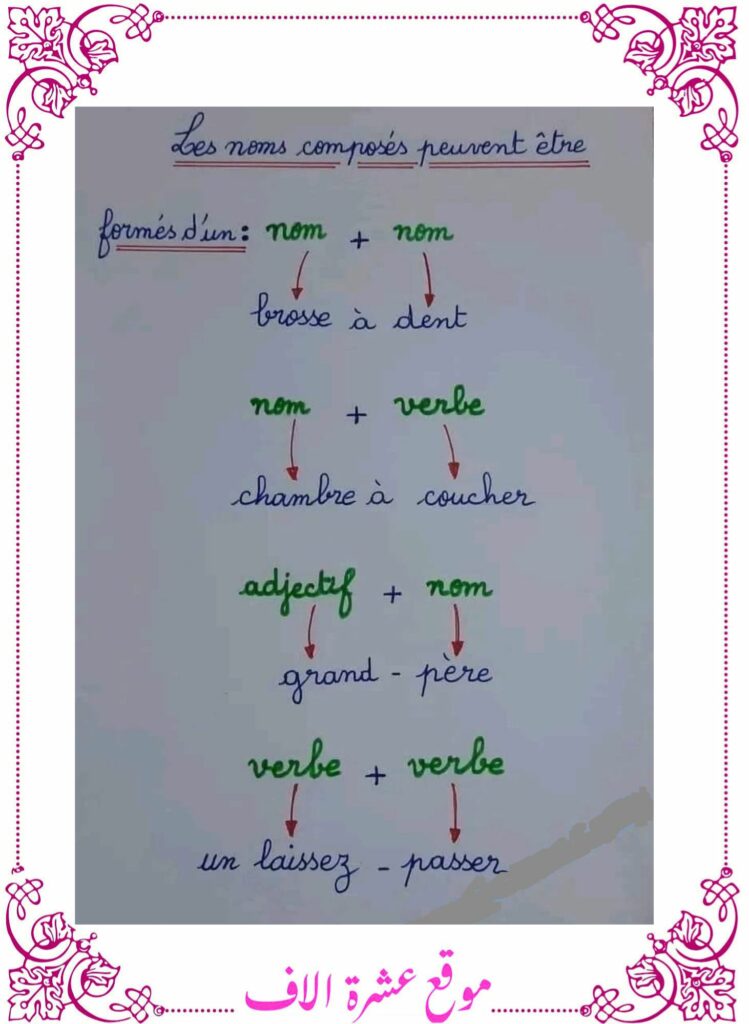 Les noms composés peuvent être
formés d'un : nom + nom
brosse à dent
nom + verbe
chambre à coucher
adjectif + nom
grand - père
verbe + verbe
un laissez - passer
موقع عشرة الاف